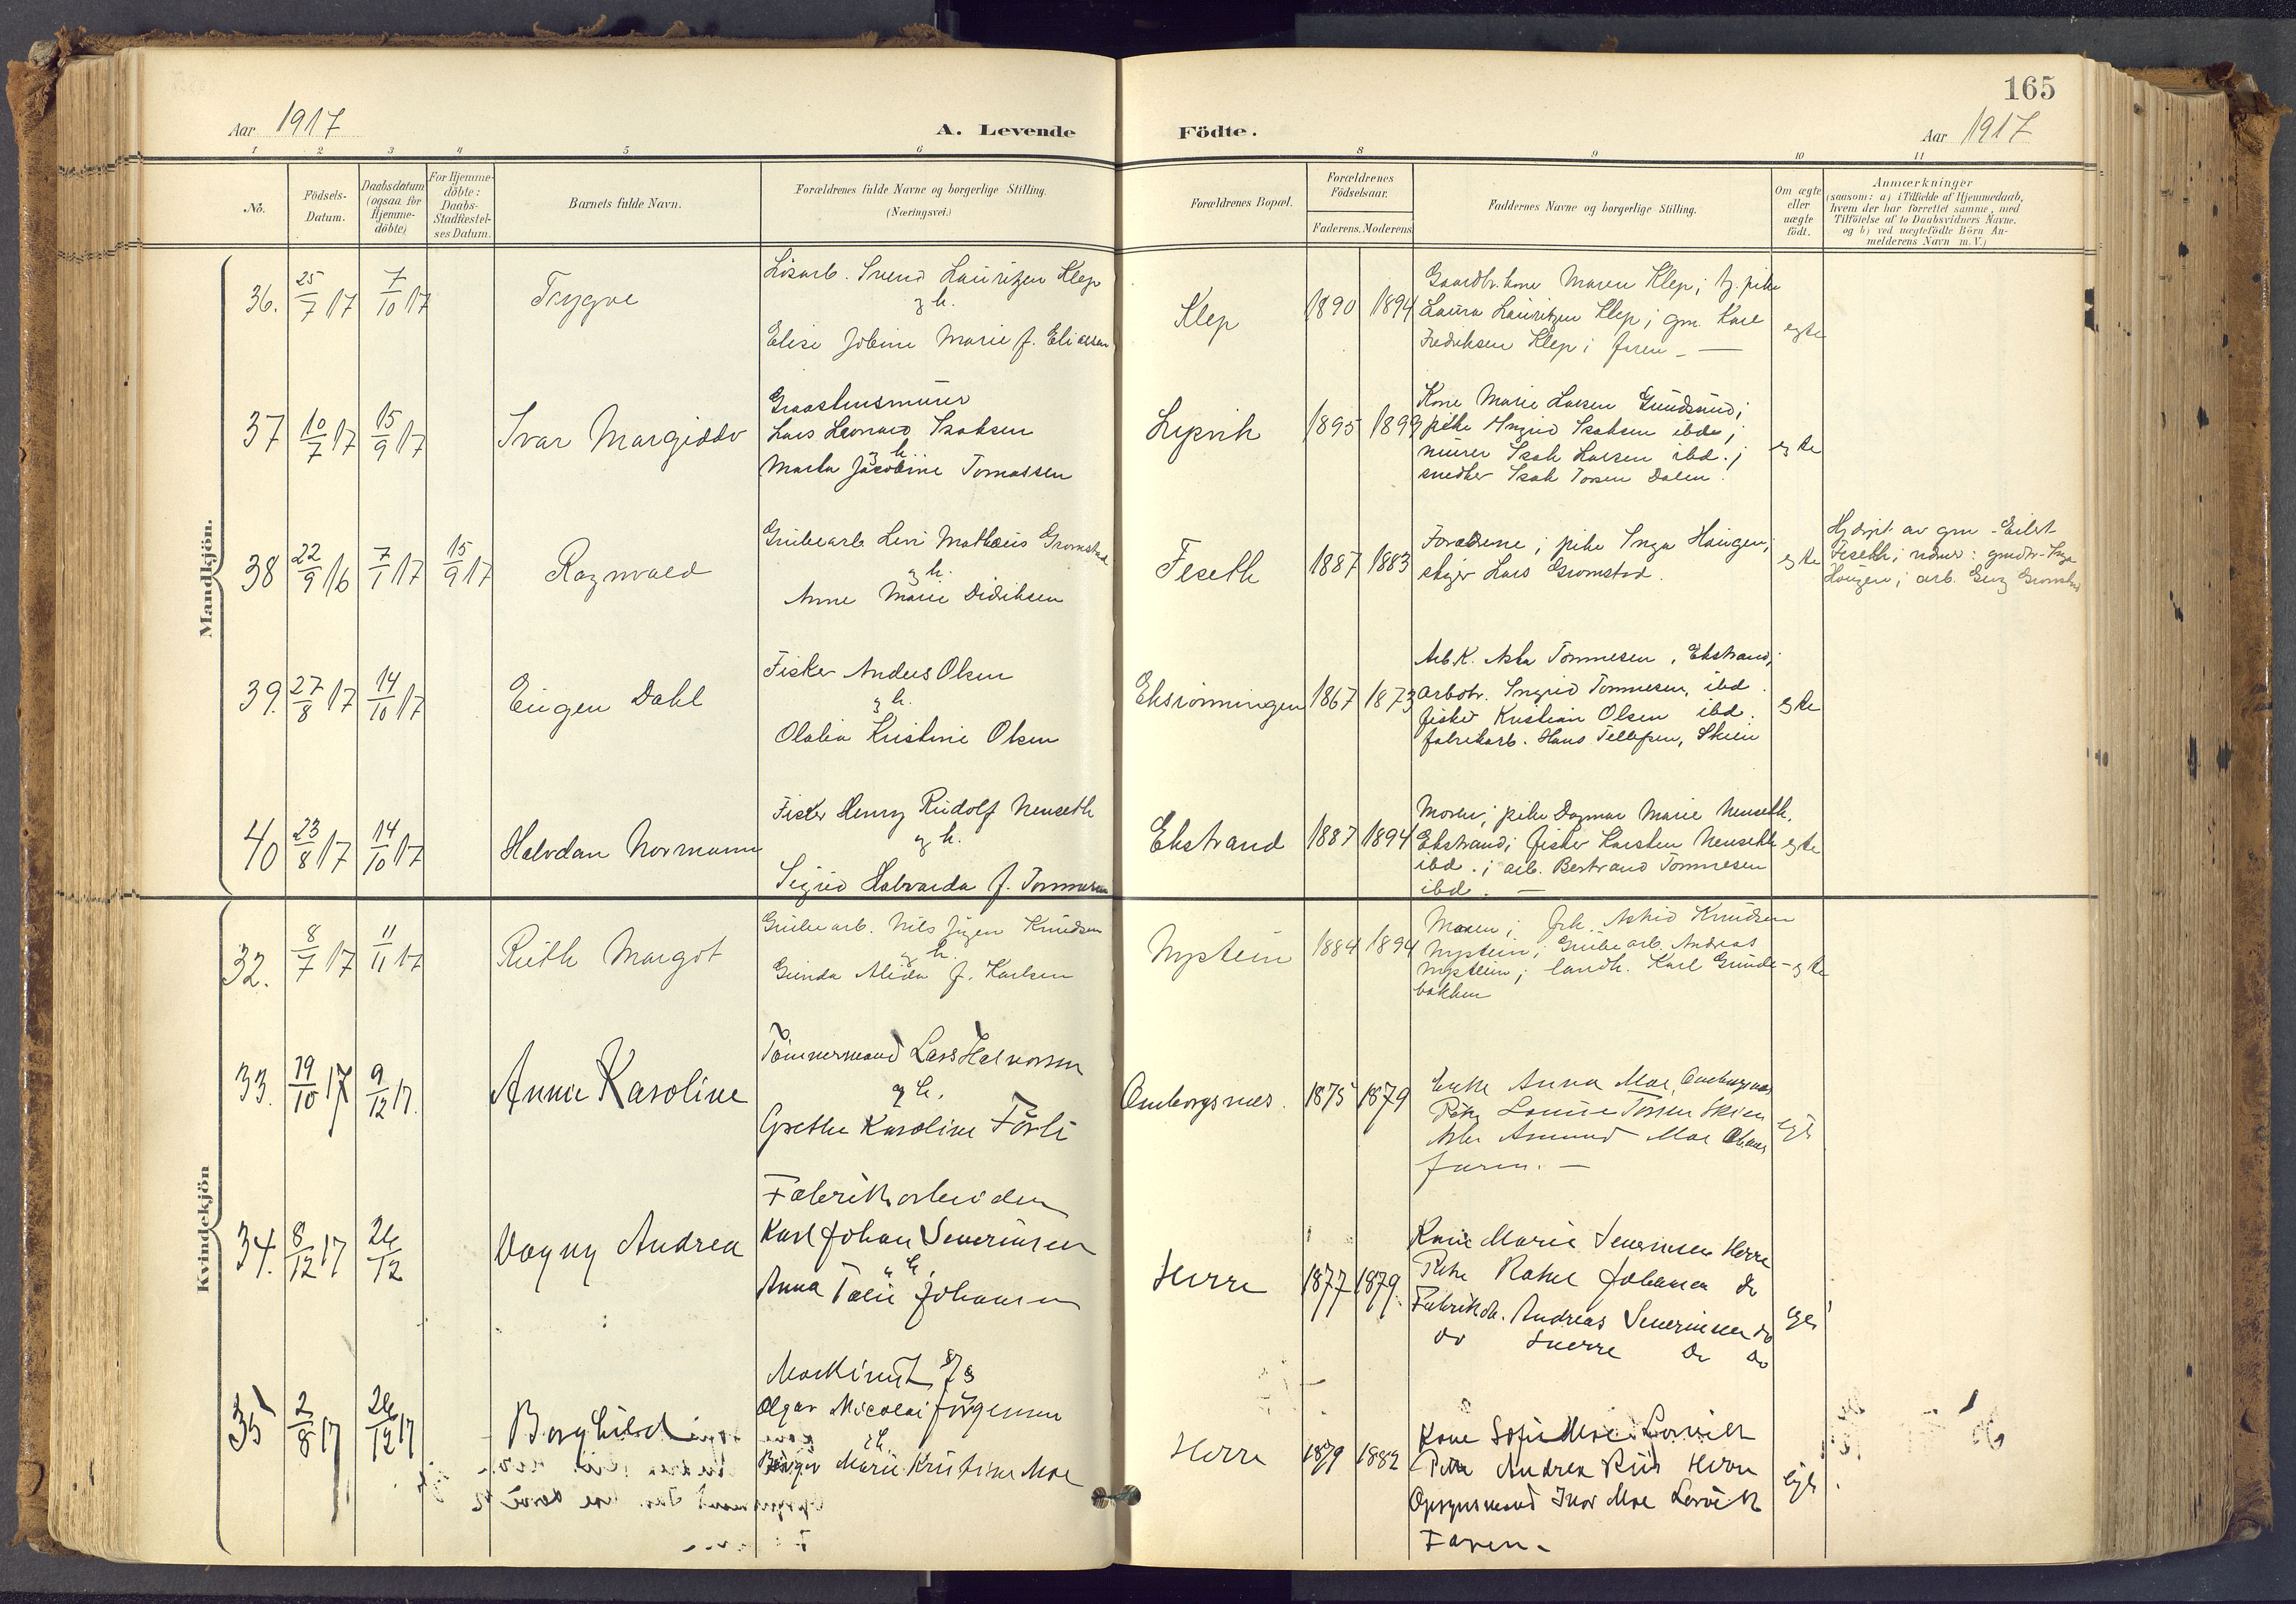 165
Aar 1917 A. Levende Födte. Aar 1917
1 2 3 4 5 6 8 9 10 11
No.
Födsels-
Datum.
Daabsdatum
(ogsaa for
Hjemme-
döbte)
For Hjemme-
döbte:
Daabs-
Stadfæstel-
ses Datum.
Barnets fulde Navn.
Forældrenes fulde Navne og borgerlige Stilling.
(Næringsvei.)
Forældrenes Bopæl.
Forældrenes
Födselsaar.
Faderens. Moderens
Faddernes Navne og borgerlige Stilling.
Om ægte
eller
uægte
födt.
Anmærkninger
(saasom: a) i Tilfælde af Hjemmedaab,
hvem der har forrettet samme, med
Tilföielse af to Daabsvidners Navne.
og b) ved uægtefödte Börn An-
melderens Navn m. V.)
Mandkjön.
36. 25/7 17 7/10 17 Trygve
Lösarb. Svend Lauritzen Klep
g h.
Elise Jobine Marie f. Eliassen
Klep 1890 1894
Gaardbr. kone Maren Klep; tj. pike
Laura Lauritzen Klep; gm. Karl
Fredriksen Klep; faren —
egte
37 10/7 17 15/9 17 Ivar Margiddo
Graastensmurer
Lars Leonard Isaksen
g h.
Marta Jacobine Tomassen
1895 1899
Kone Marie Larsen Gundsund;
pike Ingrid Isaksen ibd.;
murer Isak Larsen ibd.;
snedker Isak Torsen Dalen.
egte
38 22/9 16 7/1 17 15/9 17 Ragnvald
Grubearb. Levi Mathæus Gromstad
g h.
Anne Marie Didriksen
Feseth 1887 1883
Forældrene; pike Inga Haugen;
Lars Gromstad.
egte
Hjdøpt av gm. Eilert
Feseth; vidner: gmdtr. Inga
Haugen; arb. Gromstad
39. 27/8 17 14/10 17 Eugen Dahl
Fisker Anders Olsen
g h.
Olalia Kristine Olsen
Ekstrønningen 1867 1873
Arb.K. Asta Tommesen, Ekstrand;
arbdtr. Ingrid Tommesen, ibd.
fisker Kristian Olsen ibd.
fabrikarb. Hans Tellefsen, Skien
egte
40 23/8 17 14/10 17 Halvdan Normann
Fisker Henry Rudolf Nenseth
g h.
Sigrid Halvarda f. Tommesen
Ekstrand 1887 1894
Moren; pike Dagmar Marie Nenseth,
Ekstrand; fisker Karsten Nenseth
ibd.; arb. Bertrand Tommesen
ibd. —
egte
Kvindekjön
32. 8/7 17 11/11 17 Ruth Margot
Grubearb. Nils Jügen Knudsen
g h.
Gunda Alida f. Karlsen
Nystein 1884 1894
Moren; frk. Astrid Knudsen
Nystein; Grubearb. Andreas
Nystein; landh. Karl Gunde-
bakken
egte
33. 19/10 17 9/12 17. Annie Karoline
Tömmermand Lars Halvorsen
g h.
Grethe Karoline Försli
Omborgsnes. 1875 1879
Enke Anna Moe, Omborgsnes
Pike Lovise Torsen Skien
Arb. Amund Moe
Faren. —
egte
34. 8/12 17 26/12 Vagny Andrea
Fabrikarbeider
Karl Johan Severinsen
g h.
Anna Talie Johansen
Herre 1877 1879.
Kone Marie Severinsen Herre
Pike Rakel Johansen do
Fabrikarb. Andreas Severinsen do
do Sverre do do
egte
35 2/8 17 26/12 17 Borghild
Maskinist
Olgar Nicolai Jörgensen
g h.
Birgit Marie Kristine Moe
Herre 1879 1882
Kone Sofie Moe Lervik
Pike Andrea Riis Herre
Opsynsmand Ivar Moe Lervik
Faren.
egte